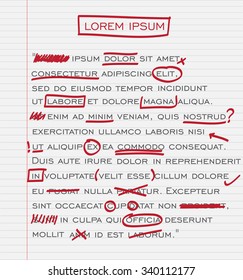 LOREM IPSUM
" IPSUM DOLOR SIT AMET
CONSECTETUR ADIPISCING ELIT,
SED DO EIUSMOD TEMPOR INCIDIDUNT
UT LABORE ET DOLORE MAGNA ALIQUA.
ENIM AD MINIM VENIAM, QUIS NOSTRUD ?
EXERCITATION ULLAMCO LABORIS NISI
! UT ALIQUIP EX EA COMMODO CONSEQUAT.
DUIS AUTE IRURE DOLOR IN REPREHENDERIT
IN VOLUPTATE (VELIT ESSE) CILLUM DOLORE
EU FUGIAT NULLA PARIATUR. EXCEPTEUR
SINT OCCAECAT CUPIDATAT NON
IN CULPA QUI OFFICIA DESERUNT
MOLLIT ANIM ID EST LABORUM."
shutterstock.com · 340112177